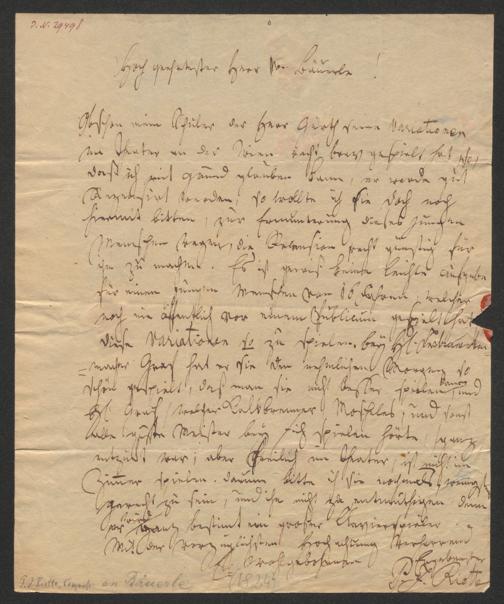 J. N. 29498
Hoch geehrtester Herr von Bäuerle!
Obschon mein Schüler der Herr Groth seine Variationen
im Theater an der Wien recht brav gespielt hat, so
daß ich mit Grund glauben kann, er werde gut
rezensirt werden, so wollte ich Sie doch noch
hiermit bitten, zur Ermunterung dieses jungen
Menschen wegen, die Rezension recht günstig für
ihn zu machen. Es ist gewiß keine leichte Aufgabe
für einen jungen Menschen von 16 Jahren, welcher
noch nie öffentlich vor einem Publicum gespielt hat
diese Variationen so zu spielen. bey H.
macher Graf hat er sie den nehmlichen Morgen so
schön gespielt, daß man sie nicht besser spielen kann, und
H. Graf, welcher Kalkbrenner Moscheles, und sonst
alle Meister bey sich spielen hörte, ganz
entzückt war; aber freilich im Theater, ist nicht im
Zimmer spielen. darum bitte ich Sie nochmals
gerecht zu sein, und ihn nicht zu entmuthigen denn
er wird ganz bestimmt ein großer Clavierspieler
Mit der vorzüglichsten Hochachtung verharrend
Ergebenster
P. J. Riotte
P. J. Riotte, an Bäuerle